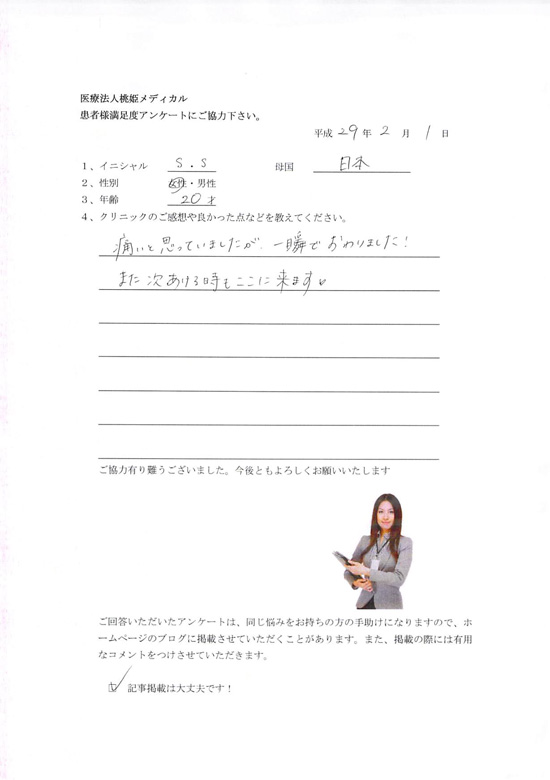 医療法人桃姫メディカル
患者様満足度アンケートにご協力下さい。
平成 29 年 2 月 1 日
1、イニシャル S.S 母国 日本
2、性別 女性・男性
3、年齢 20才
4、クリニックのご感想や良かった点などを教えてください。
痛いと思っていましたが、一瞬でおわりました!
また次あける時もここに来ます♡
ご協力有り難うございました。今後ともよろしくお願いいたします
ご回答いただいたアンケートは、同じ悩みをお持ちの方の手助けになりますので、ホ
ームページのブログに掲載させていただくことがあります。また、掲載の際には有用
なコメントをつけさせていただきます。
☑ 記事掲載は大丈夫です！